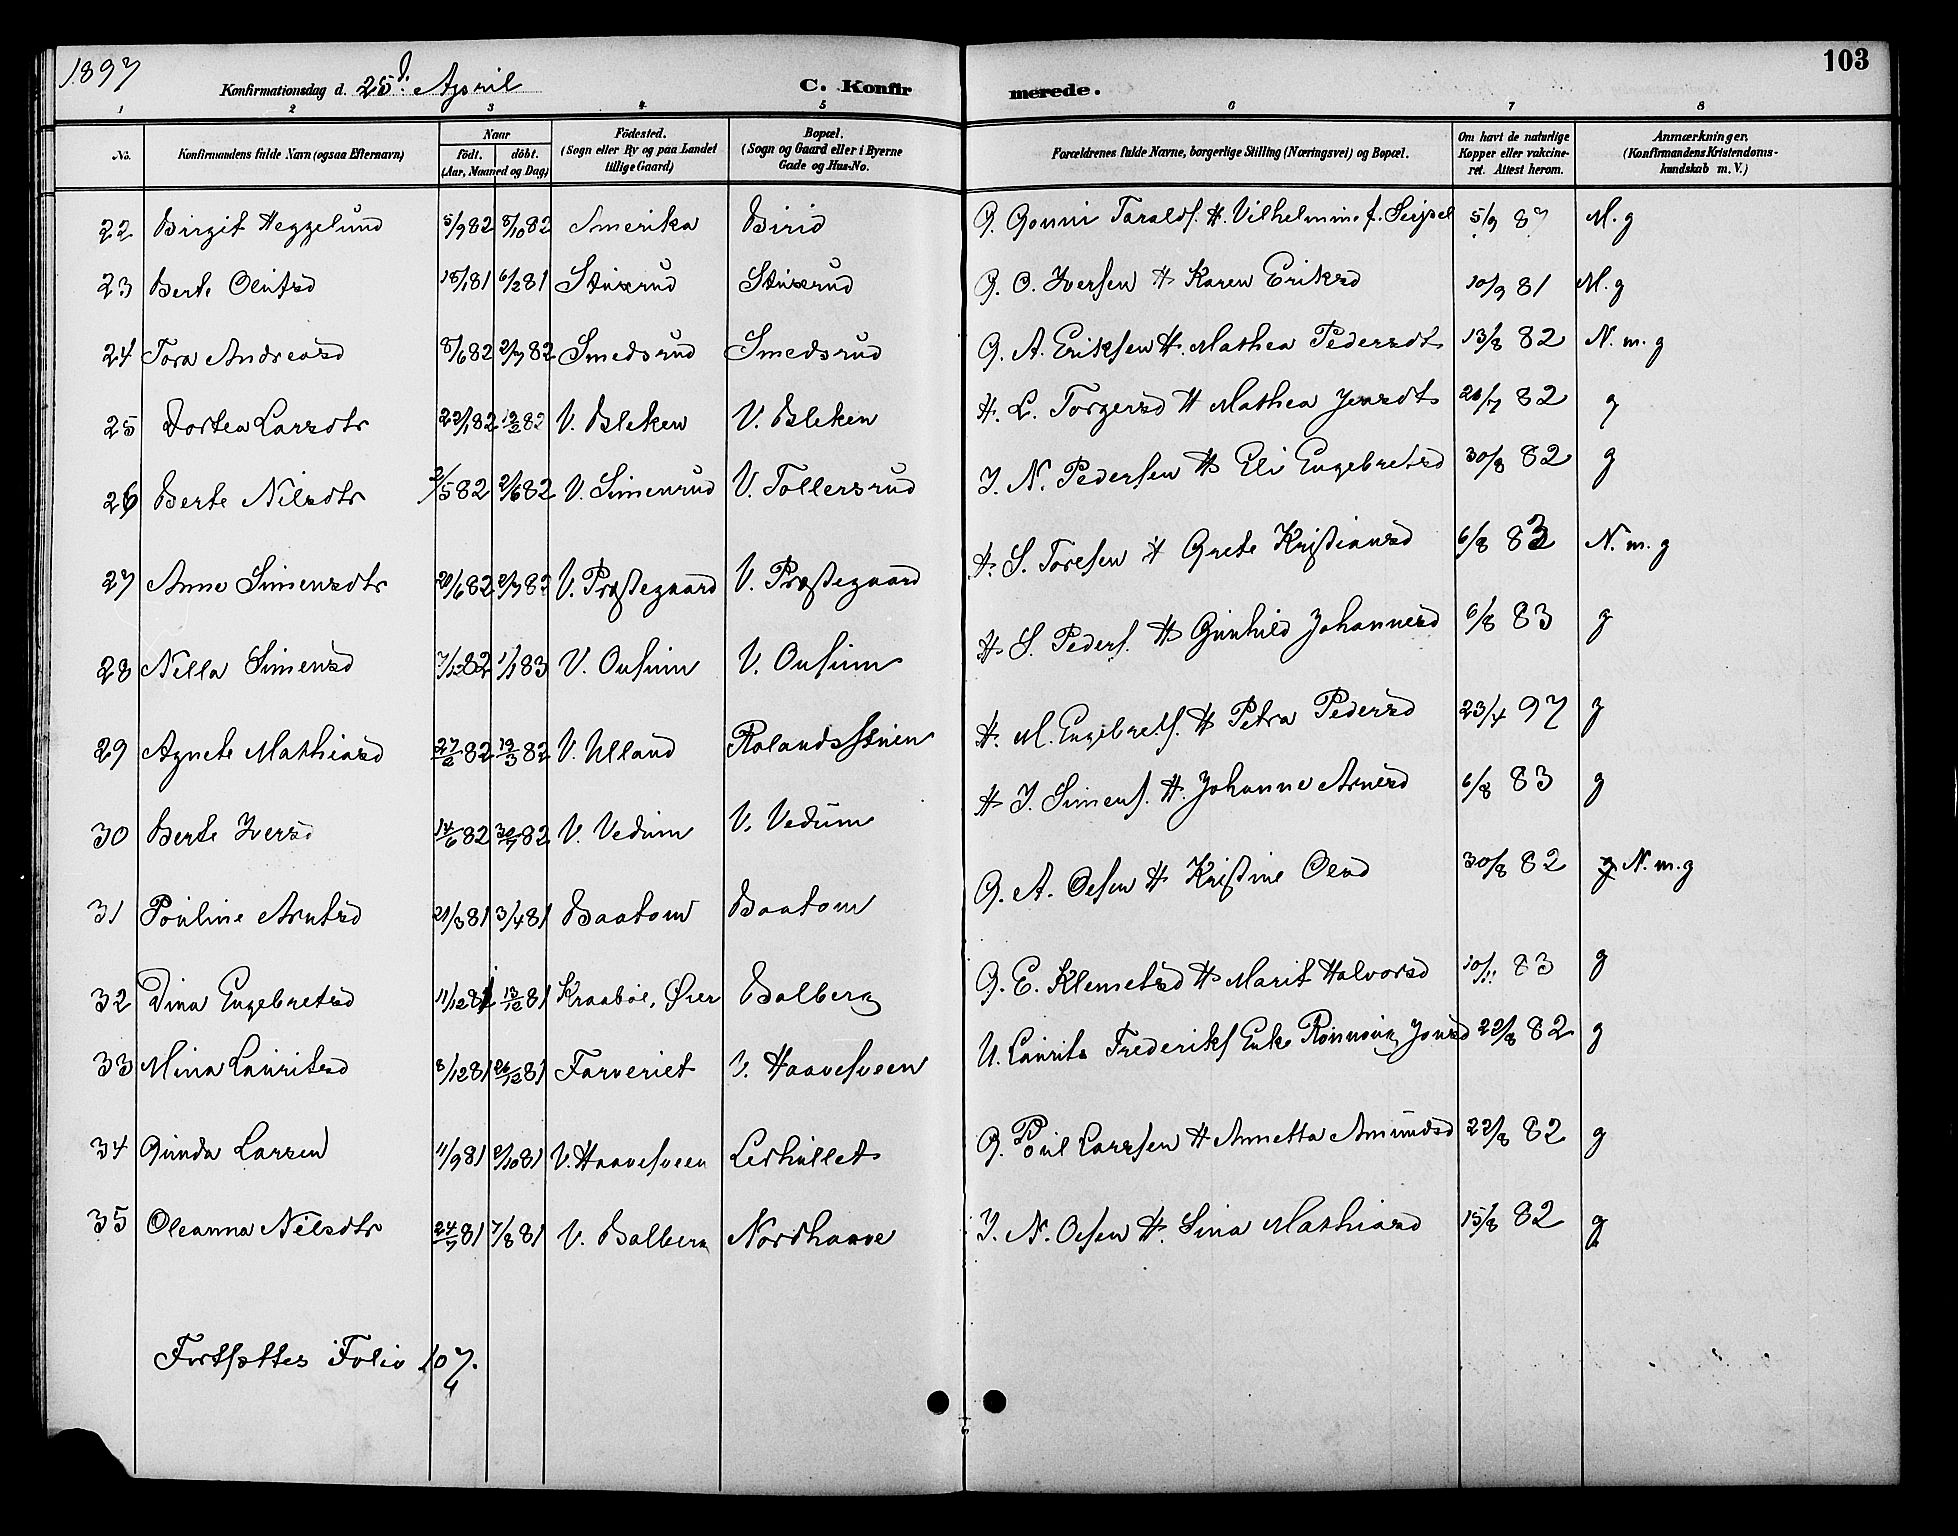 1897
Konfirmationsdag d. 25d. April
C. Konfirmerede.
103
1 2 3 4 5 6 7 8
No.
Konfirmandens fulde Navn (ogsaa Efternavn)
Naar
födt. döbt.
(Aar, Maaned og Dag)
Födested.
(Sogn eller By og paa Landet
tillige Gaard)
Bopæl.
(Sogn og Gaard eller i Byerne
Gade og Hus-No.
Forældrenes fulde Navne, borgerlige Stilling (Næringsvei) og Bopæl.
Om havt de naturlige
Kopper eller vakcine-
ret. Attest herom.
Anmærkninger.
(Konfirmandens Kristendoms-
kundskab m. V.)
22 Birgit Heggelund 5/9 82 8/10 82 Amerika Birid G. Gonni Taralds. H. Vilhelmine f. Seipel 5/9 87 M. g
23 Berte Olufsd 15/1 81 6/2 81 Stuxrud Stuxrud G. O. Iversen H Karen Eriksd 10/9 81 M. g
24 Tora Andreasd 8/6 82 2/7 82 Smedsrud Smedsrud G. A. Eriksen H. Mathea Pedersdt 13/8 82 N. m. g
25 Dortea Larsdtr 22/1 82 12/2 82 V. Bleken V. Bleken H. L. Torgersd H Mathea Jensdt 20/7 82 g
26 Berte Nilsdtr 3/5 82 2/6 82 V. Simenrud V. Tollersrud I. N. Pedersen H Eli Engebretsd 30/8 82 g
27 Anne Simensdtr 20/6 82 2/7 82 V. Prestegaard V. Prestegaard H. S. Toresen H Grete Kristiansd 6/8 83 N. m. g
28 Nella Simensd 7/12 82 1/1 83 V. Ousum V. Ousum H S. Peders. H Gunhild Johannesd 6/8 83 g
29 Agnete Mathiasd 27/2 82 19/3 82 V. Ulland Rolandsstuen H. M. Engebrets. H Petra Pedersd 23/4 97 g
30 Berte Iversd 14/6 82 30/7 82 V. Vedum V. Vedum H I. Simens. H. Johanne Arnesd 6/8 83 g
31 Pouline Arntsd 21/3 81 3/4 81 Baatom Baatom G. A. Olsen H Kristine Olsd 30/8 82 g N. m. g
32 Dina Engebretsd 11/12 81 13/12 81 Kraabøl, Øier Balberg G. E. Klemetsd H Marit Halvorsd 10/11 83 g
33 Mina Lauritsd 8/12 81 26/12 81 Farveriet V. Haavesveen U. Laurits Frederiks Enke Rønnaug Jonsd 22/8 82 g
34 Gunda Larsen 11/9 81 2/10 81 V. Haavesveen Lerhullet G. Poul Larssen H Annetta Amundsd 22/8 82 g
35 Oleanna Nilsdtr 24/7 81 7/8 81 V. Balberg Nordhaave I. N. Olsen H. Sina Mathiasd 15/8 82 g
Fortsættes Folio 107.